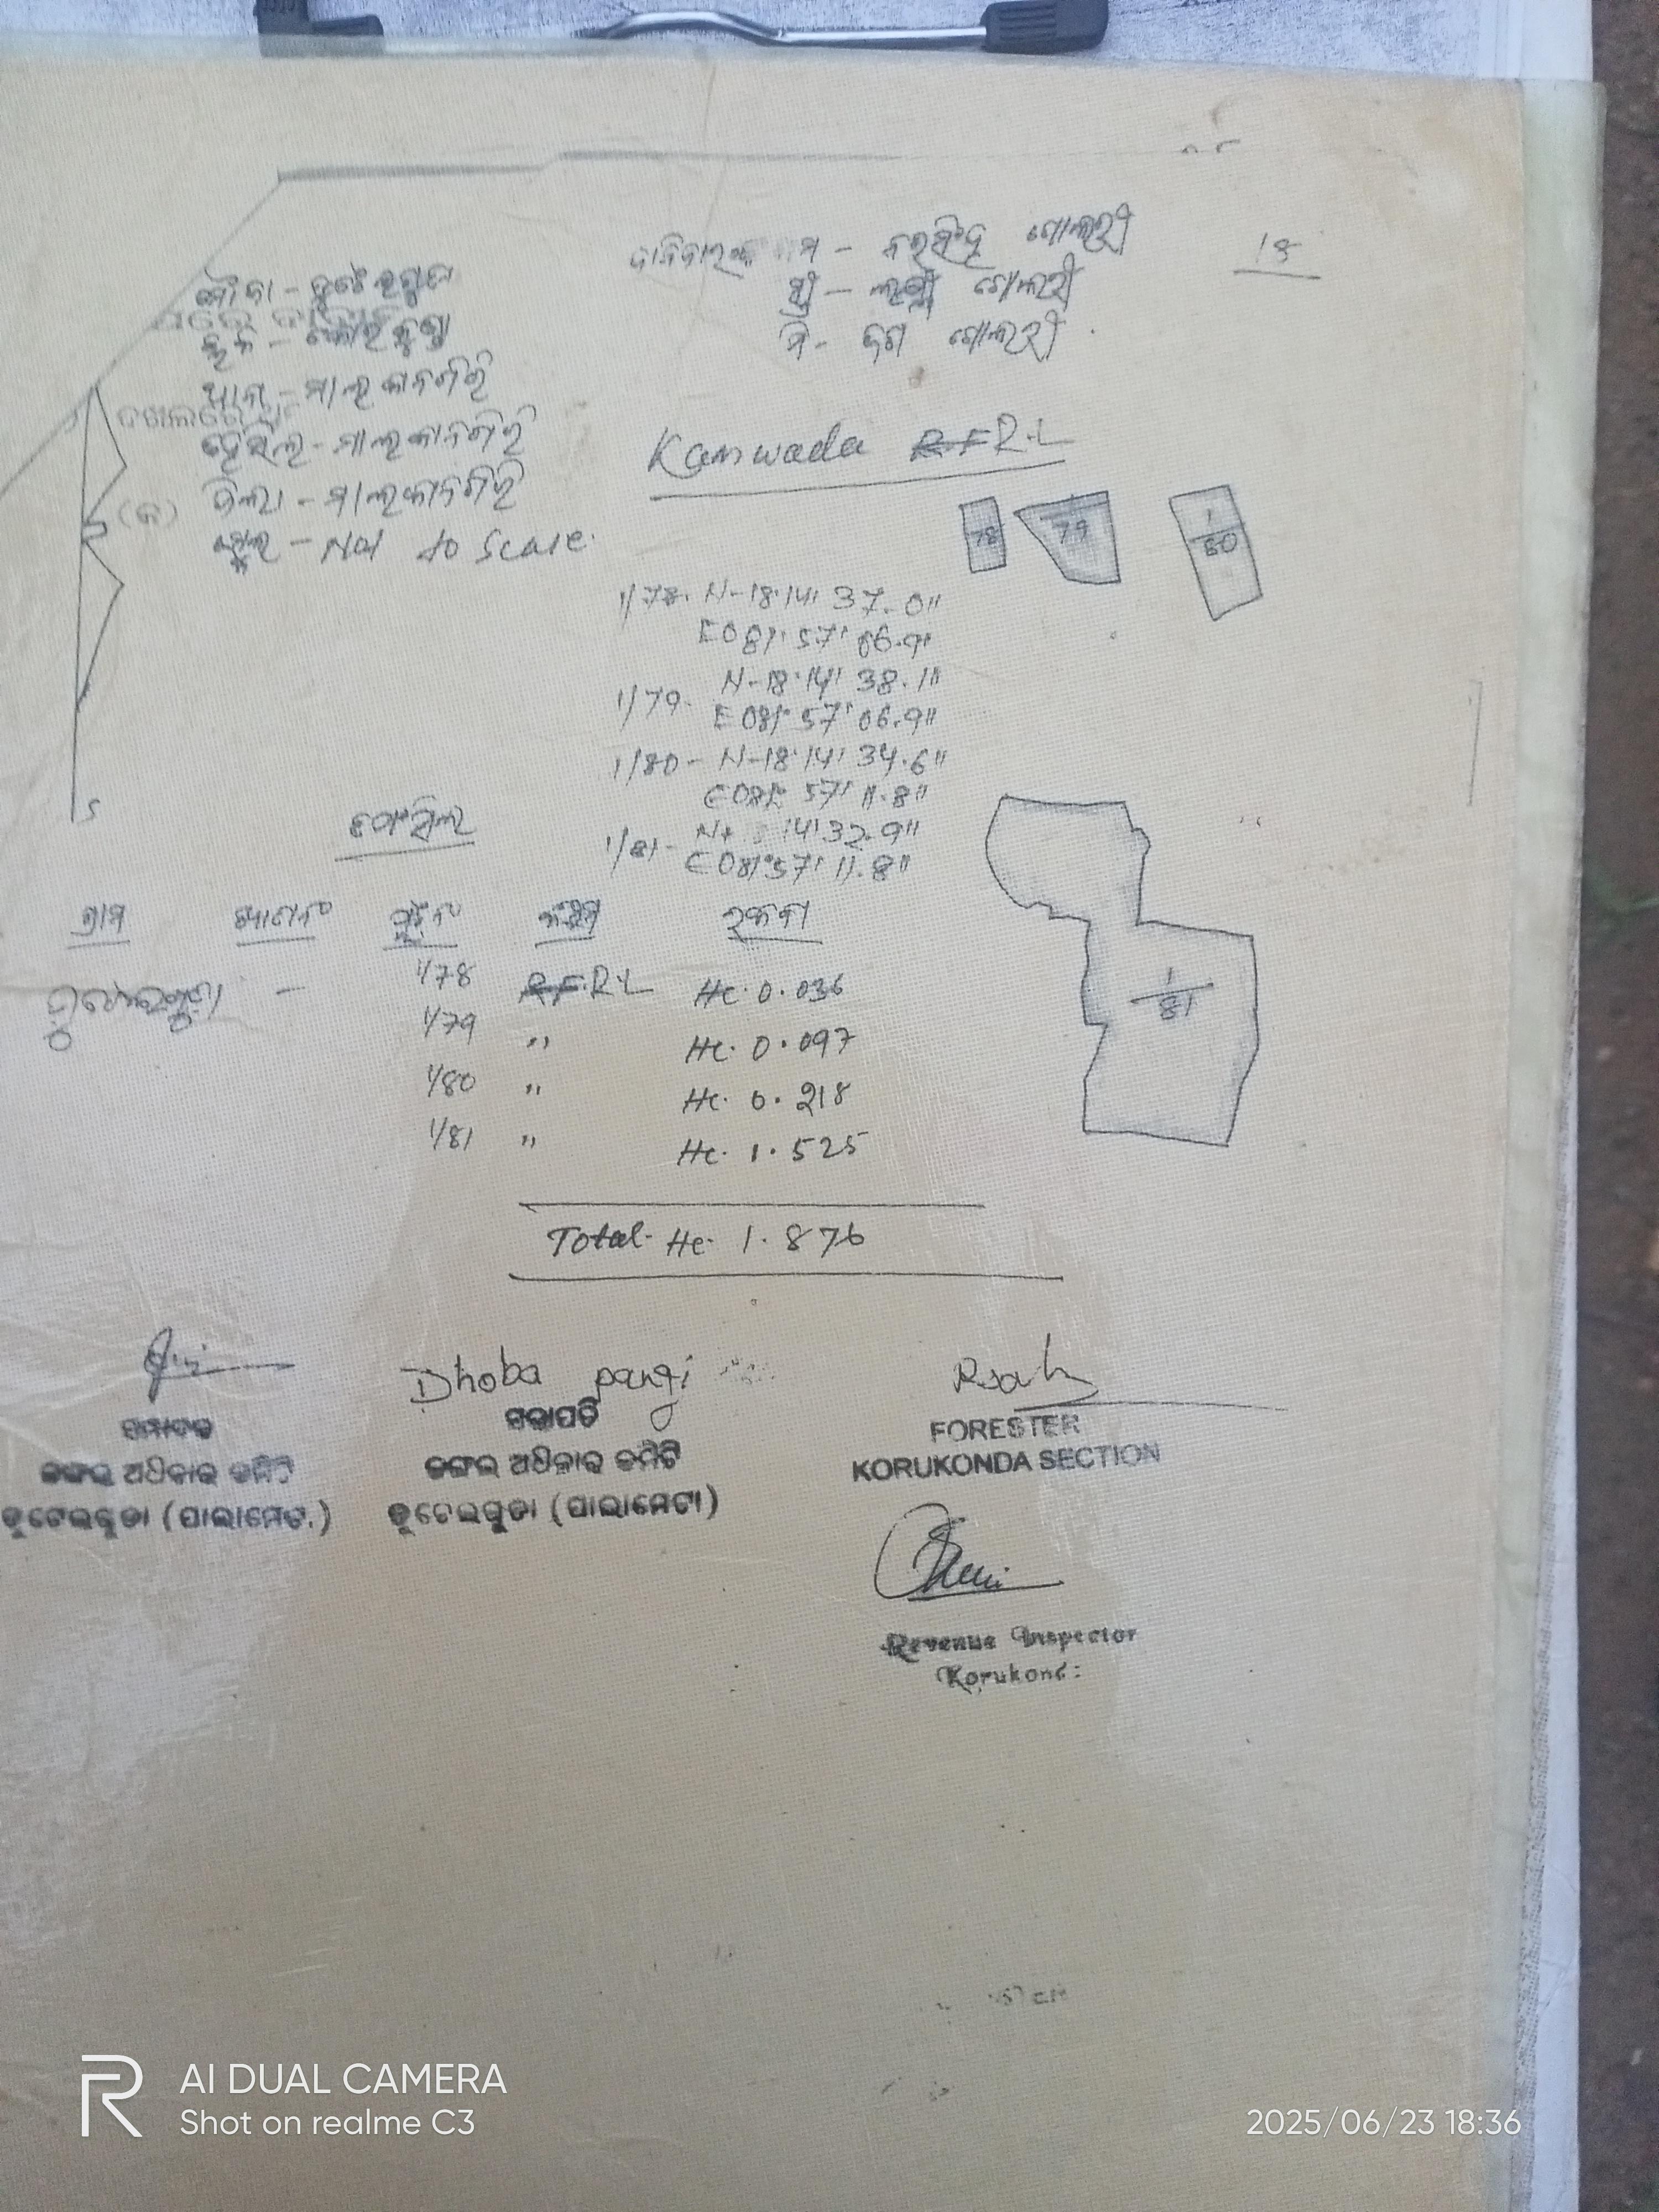 18
ଦାବିଦାରଙ୍କ ନାମ - ନରସିଂହ ଗୋଲାରୀ
ସ୍ତ୍ରୀ - ଲକ୍ଷ୍ମୀ ଗୋଲାରୀ
ପି - ଗୋଲାରୀ
ମୌଜା -
ଥାନା - ମାଲକାନଗିରି
ତହସିଲ - ମାଲକାନଗିରି
ଜିଲ୍ଲା - ମାଲକାନଗିରି
ସ୍କେଲ - Not to Scale.
ଦଖଲରେ
(କ)
S
Kamwada R.F R.L
78
79
1/80
1/78. N-18°14' 37.0"
E081° 57' 06.9"
1/79. N-18°14' 38.1"
E081° 57' 06.9"
1/80 - N-18°14' 34.6"
E081° 57' 11.8"
1/81 - 14' 32.9"
E081° 57' 11.8"
1/81
ତଫସିଲ
ଗ୍ରାମ ଖାତାନଂ ପ୍ଲଟନଂ କିସମ ରକବା
- 1/78 R.F. R.L Hc. 0.036
1/79 " Hc. 0.097
1/80 " Hc. 0.218
1/81 " Hc. 1.525
Total - Hc. 1.876
Dhoba pangi
ସମ୍ପାଦକ
ଜଙ୍ଗଲ ଅଧିକାର କମିଟି
ଡୁଟେଇଗୁଡା (ପାଲାମେଟା)
ସଭାପତି
ଜଙ୍ଗଲ ଅଧିକାର କମିଟି
ଡୁଟେଇଗୁଡା (ପାଲାମେଟା)
FORESTER
KORUKONDA SECTION
Revenue Inspector
AI DUAL CAMERA
Shot on realme C3
2025/06/23 18:36